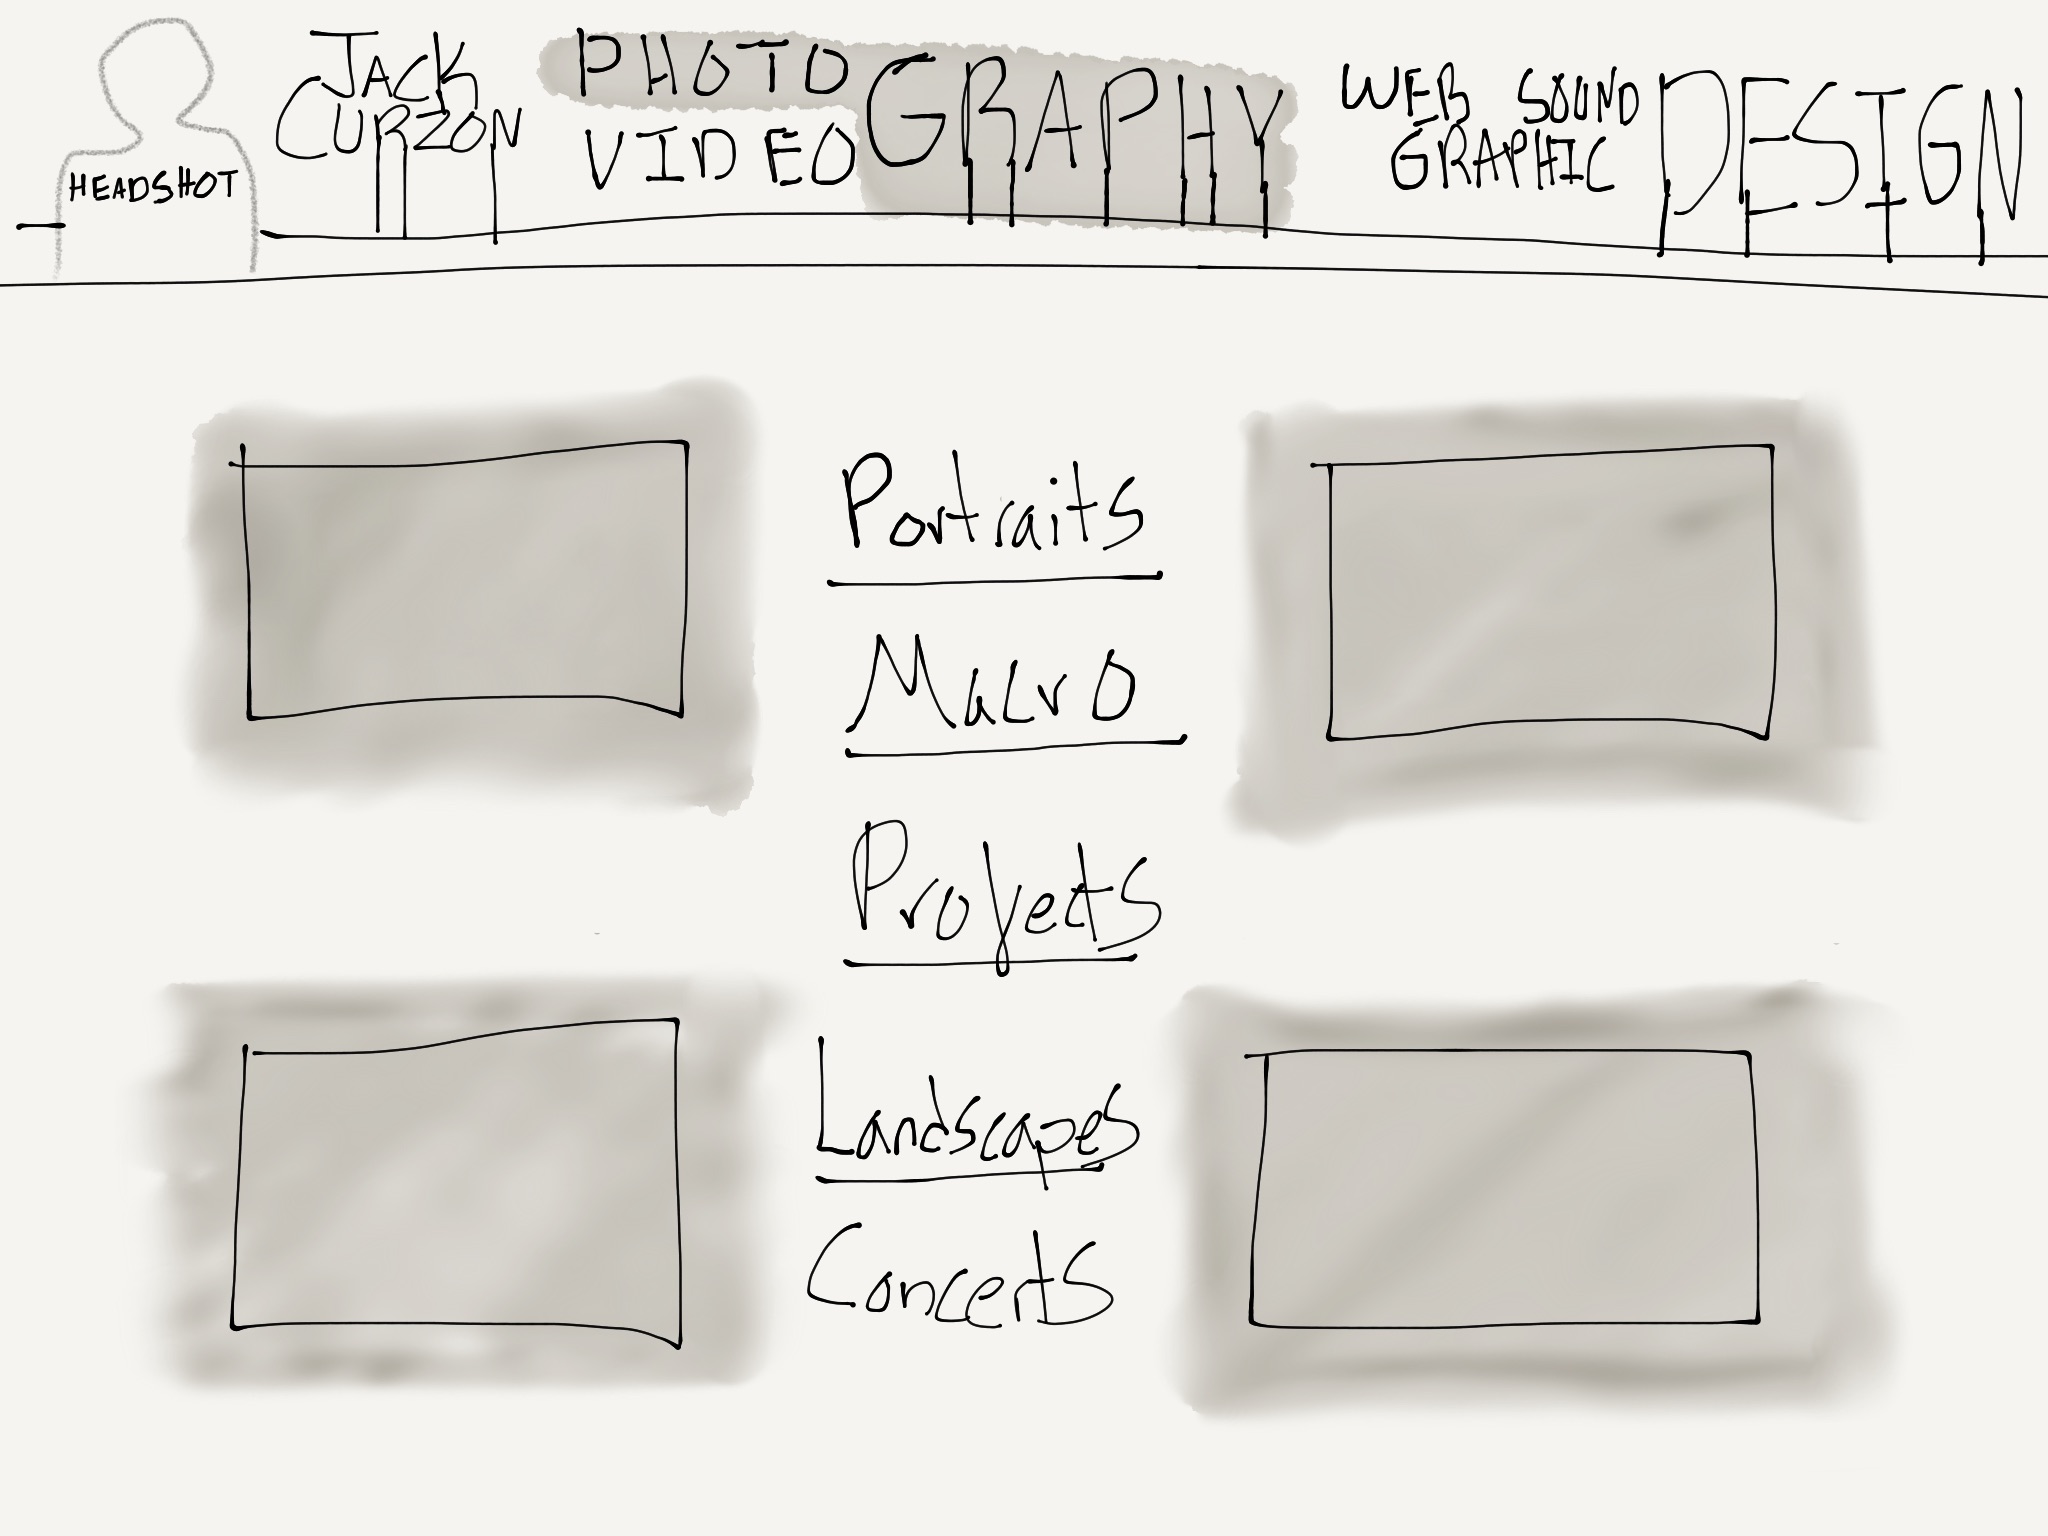 HEADSHOT
JACK
CURZON
PHOTO
VIDEO
GRAPHY
WEB SOUND
GRAPHIC
DESIGN
Portraits
Macro
Projects
Landscapes
Concerts